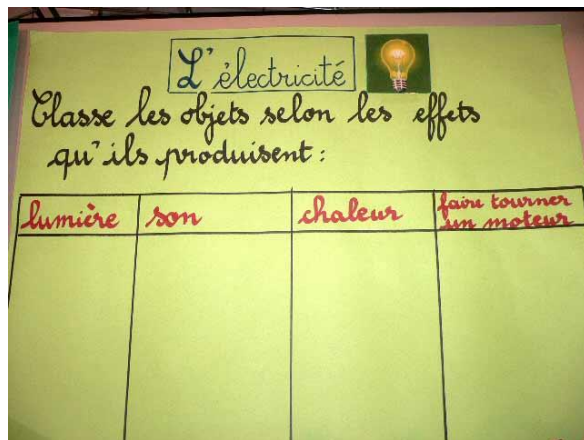 L'électricité
Classe les objets selon les effets
qu'ils produisent :
lumière son chaleur faire tourner
un moteur